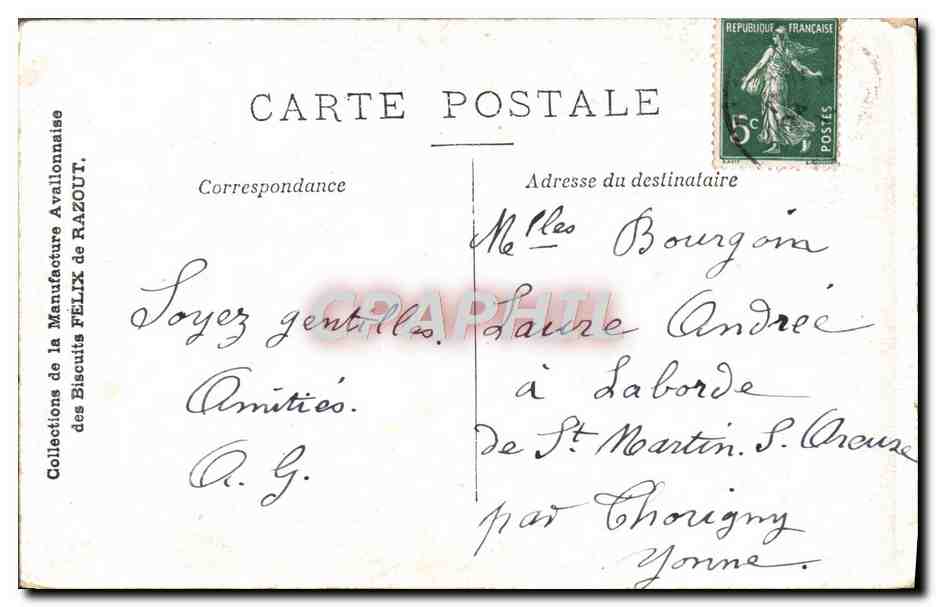 REPUBLIQUE FRANÇAISE
5c
POSTES
CARTE POSTALE
Correspondance
Adresse du destinataire
Collections de la Manufacture Avallonnaise
des Biscuits FELIX de RAZOUT.
Soyez gentilles.
Amitiés.
A. G.
Mlles Bourgoin
Laure Andrée
à Laborde
de St Martin. S. Oreuse
par Thorigny
Yonne.
CPAPHIL